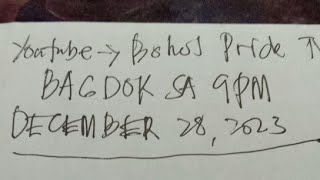 Youtube → Bohol Pride TV
BAGDOK SA 9PM
DECEMBER 28, 2023